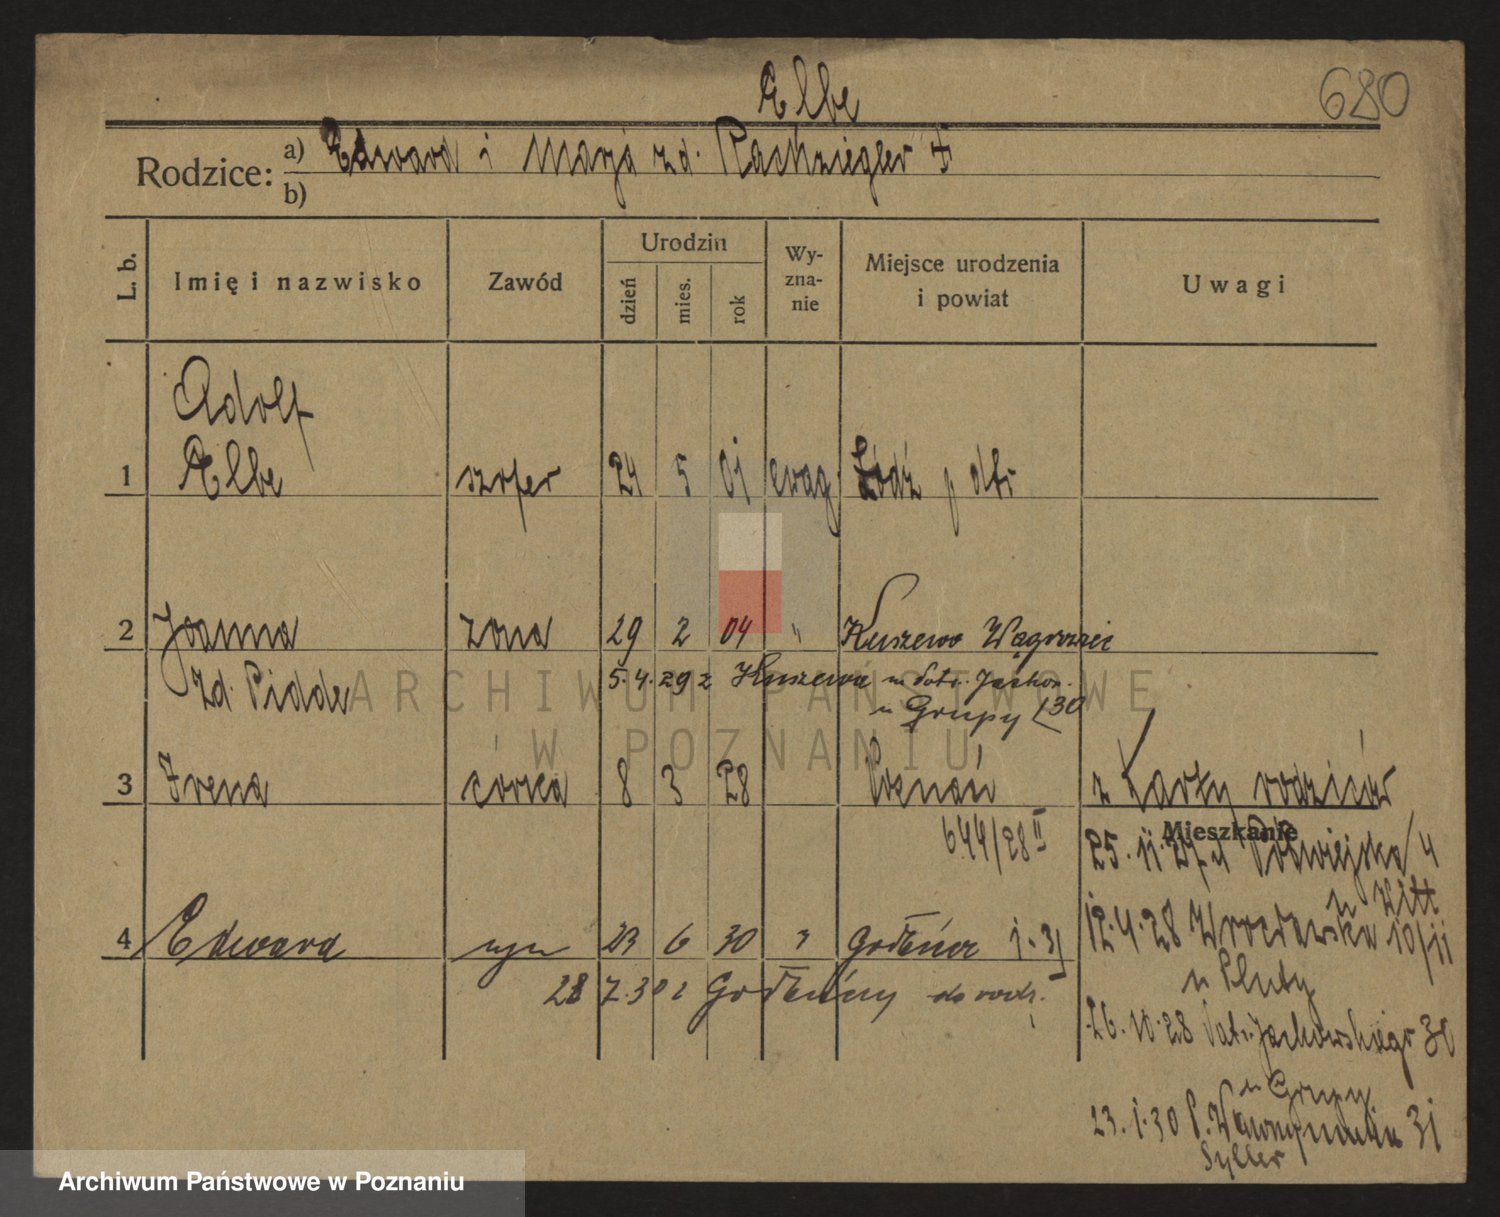 Elbe
680
Rodzice: a) Edward i Marja zd. Rachziegler
b)
L. b. Imię i nazwisko Zawód Urodzin dzień mies. rok Wy-zna-nie Miejsce urodzenia i powiat Uwagi
Adolf
1 Elbe szofer 24 5 01 ewag Łódź
2 Joanna żona 29 2 04 " Kuszewo Wągrowiec
zd. Pidde 5.4.29 z Kuszewa Jackow.
u Grupy 30
3 Irena córka 8 3 28 Poznań z karty rodziców
644/28 II
Mieszkanie
25.11.27 Półwiejska 4
u Witt
4 Edward syn 23 6 30 12.4.28 Wrocławska 10/11
28 7.30 z do rodz.
u Pluty
26.10.28 Jackowskiego 30
u Grupy
23.1.30 31
Syller
ARCHIWUM PAŃSTWOWE
W POZNANIU
Archiwum Państwowe w Poznaniu